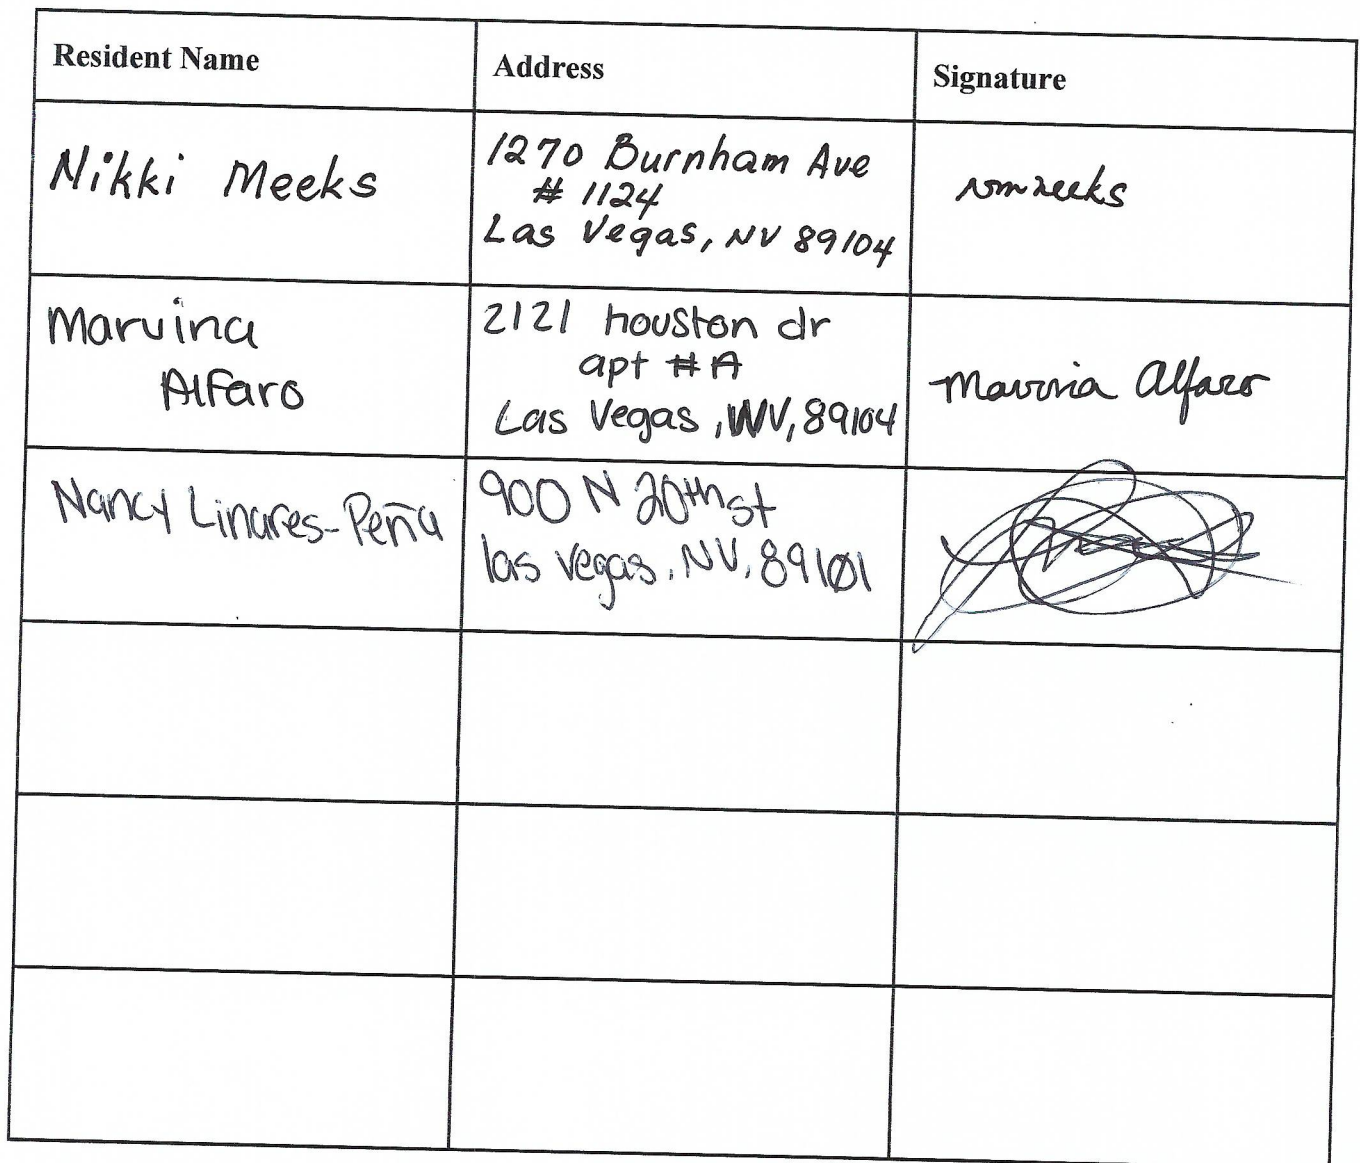 Resident Name
Address
Signature
Nikki Meeks
1270 Burnham Ave
# 1124
Las Vegas, NV 89104
nmmeeks
Marvina
Alfaro
2121 houston dr
apt # A
Las Vegas, NV, 89104
Marvina Alfaro
Nancy Linares-Peña
900 N 20th st
las vegas, NV, 89101